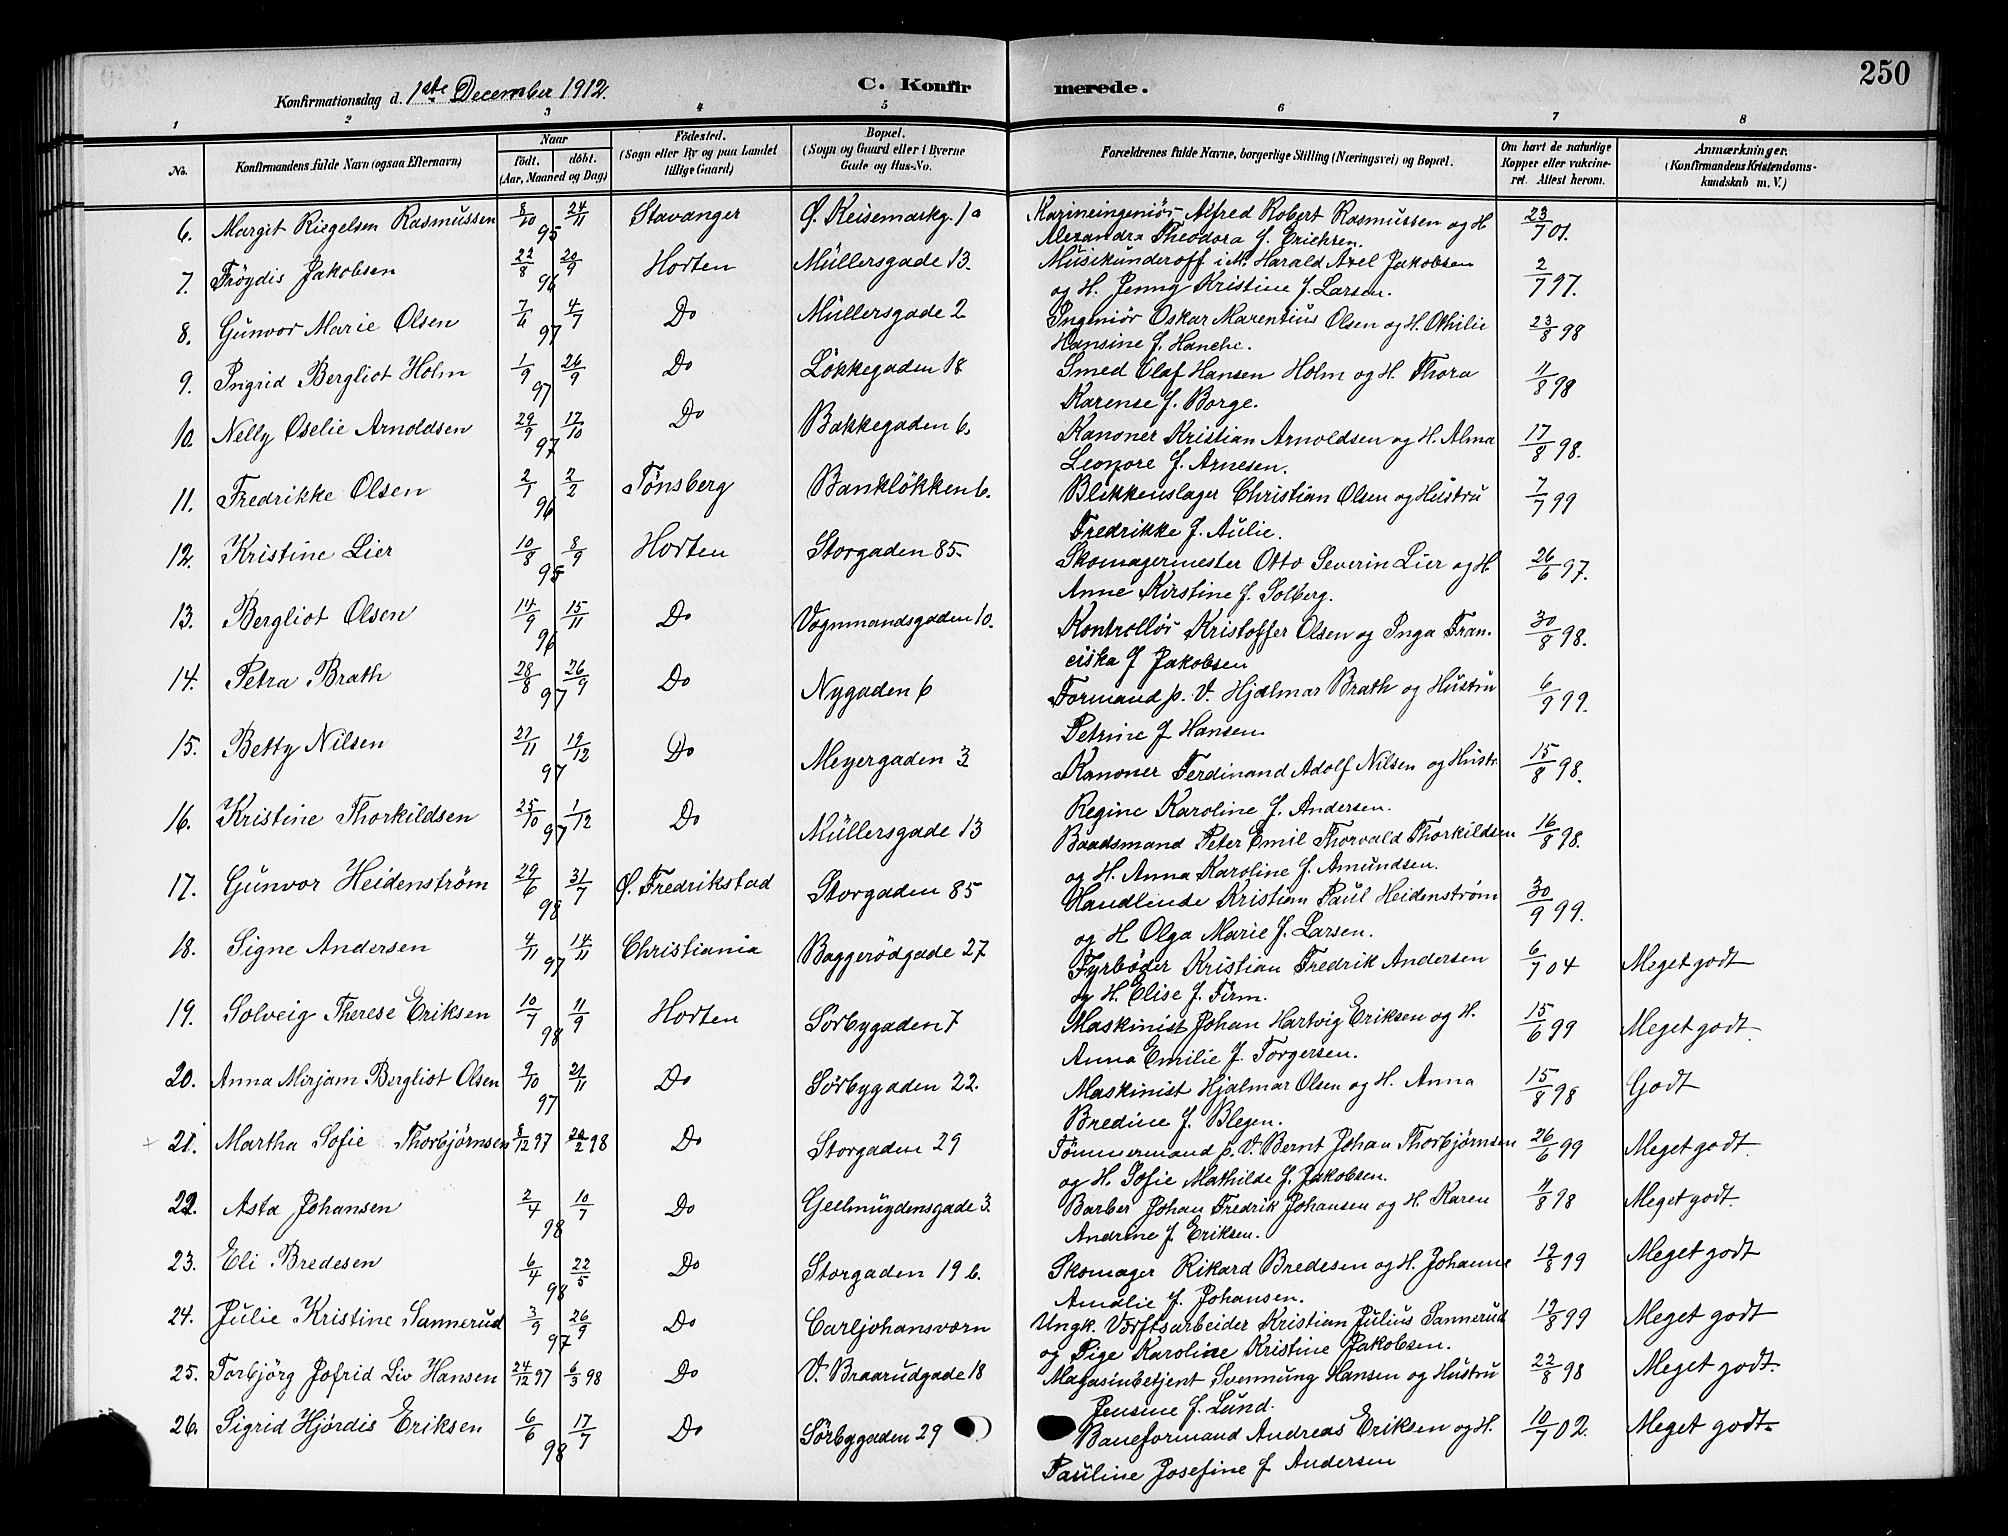 250
Konfirmationsdag d. 1ste December 1912. C. Konfirmerede.
1 2 3 4 5 6 7 8
No. Konfirmandens fulde Navn (ogsaa Efternavn) Naar født. døbt. (Aar, Maaned og Dag) Fødested. (Sogn eller By og paa Landet tillige Gaard) Bopæl. (Sogn og Gaard eller i Byerne Gade og Hus-No. Forældrenes fulde Navne, borgerlige Stilling (Næringsvei) og Bopæl. Om havt de naturlige Kopper eller vakcineret. Attest herom. Anmærkninger. (Konfirmandens Kristendomskundskab m. V.)
6. Margit Riegelsen Rasmussen 8/10 24/11 95 Stavanger Ø. Keisemarkg. 10 Alfred Robert Rasmussen og H. 23/7 01.
Alexandra Theodora f. Erichsen.
7. Frøydis Jakobsen 22/8 20/9 96 Horten Müllersgade 13. Musikunderoff. i M. Harald Axel Jakobsen 2/7 97.
og H. Jenny Kristine f. Larsen.
8. Gunvor Marie Olsen 7/6 4/7 97 Do Müllersgade 2 Ingeniør Oskar Marentius Olsen og H. Othilie 23/8 98
Hansine f. Hanche.
9. Ingrid Bergliot Holm 1/9 26/9 97 Do Løkkegaden 18 Smed Olaf Hansen Holm og H. Thora 11/8 98
Karense f. Borge.
10. Nelly Oselie Arnoldsen 29/9 17/10 97 Do Bakkegaden 6. Kanoner Kristian Arnoldsen og H. Alma 17/8 98.
Leonore f. Arnesen.
11. Fredrikke Olsen 2/1 2/2 96 Tønsberg Bankløkken 6. Blikkenslager Christian Olsen og Hustru 7/7 99
Fredrikke f. Aulie.
12. Kristine Lier 10/8 8/9 95 Horten Storgaden 85. Skomagermester Otto Severin Lier og H. 26/6 97.
Anne Kirstine f. Solberg.
13. Bergliot Olsen 14/9 15/11 96 Do Vognmandsgaden 10. Kontrollør Kristoffer Olsen og Inga Fran- 30/8 98.
ciska f Jakobsen
14. Petra Brath 28/8 26/9 97 Do Nygaden 6 Formand p. V. Hjalmar Brath og Hustru 6/9 99.
Petrine f Hansen.
15. Betty Nilsen 27/11 19/12 97 Do Meyergaden 3 Kanoner Ferdinand Adolf Nilsen og Hustr. 15/8 98.
Regine Karoline f. Andersen.
16. Kristine Thorkildsen 25/10 1/12 97 Do Müllersgade 13 Baadsmand Peter Emil Thorvald Thorkildsen 16/8 98.
og H. Anna Karoline f. Amundsen.
17. Gunvor Heidenstrøm 29/6 31/7 98 Ø. Fredrikstad Storgaden 85 Handlende Kristian Paul Heidenstrøm 30/9 99.
og H Olga Marie f. Larsen.
18. Signe Andersen 4/11 14/11 97 Christiania Baggerødgade 27 Fyrbøder Kristian Fredrik Andersen 6/7 04 Meget godt
og H. Elise f. Firm.
19. Solveig Therese Eriksen 10/7 11/9 98 Horten Sørbygaden 7 Maskinist Johan Hartvig Eriksen og H. 15/6 99 Meget godt
Anna Emilie f. Torgersen.
20. Anna Mirjam Bergliot Olsen 9/10 21/11 97 Do Sørbygaden 22. Maskinist Hjalmar Olsen og H. Anna 15/8 98 Godt
Bredine f. Blegen.
21. Martha Sofie Thorbjørnsen 8/12 97 20/2 98 Do Storgaden 29 Tømmermand p. V. Bernt Johan Thorbjørnsen 26/6 99 Meget godt
og H. Sofie Mathilde f. Jakobsen.
22. Asta Johansen 2/4 10/7 98 Do Geelmuydensgade 3. Barber Johan Fredrik Johansen og H. Karen 11/8 98 Meget godt.
Andrine f. Eriksen.
23. Eli Bredesen 6/4 22/5 98 Do Storgaden 19 b. Skomager Rikard Bredesen og H. Johanne 19/8 99 Meget godt
Amalie f. Johansen.
24. Julie Kristine Sannerud 3/9 26/9 97 Do Carljohansværn Ungk. Værftsarbeider Kristian Julius Sannerud 19/8 99 Meget godt
og Pige Karoline Kristine Jakobsen.
25. Torbjørg Jofrid Liv Hansen 24/12 97 6/3 98 Do V. Braarudgade 18 Magasinbetjent Svennung Hansen og Hustru 22/8 98 Meget godt
Jensine f. Lund.
26. Sigrid Hjørdis Eriksen 6/6 17/7 98 Do Sørbygaden 29 Baneformand Andreas Eriksen og H. 10/7 02. Meget godt.
Pauline Josefine f Andersen